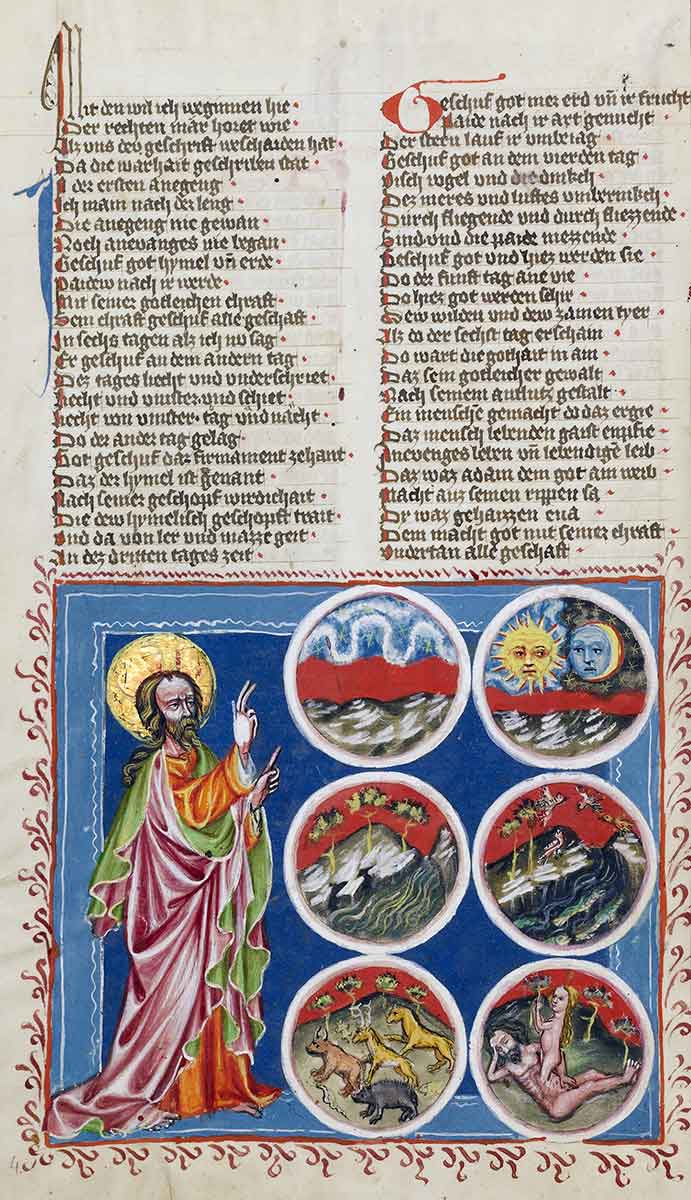 Mit den wil ich weginnen hie
Der rechten mär horet wie
Alz uns dew geschrift weschaiden hat
Da die warhait geschriben stat
In der ersten anegeng
Ich main nach der leng
Die anegeng nie gewan
Noch anevanges nie began
Geschuf got hymel vn̄ erde
Paidew nach ir werde
Mit seiner gotleichen chraft
Sein chraft geschuf alle geschaft
In sechs tagen alz ich nu sag
Er geschuf an dem andern tag
Dez tages liecht und underschriet
Liecht und vinster und schiet
Liecht von vinster tag und nacht
Do der ander tag gelag
Got geschuf daz firmament zehant
Daz der hymel ist genant
Nach seiner geschopf wirdichait
Die dew hymelisch geschopft trait
Und da von ler und mazze geit
An dez dritten tages zeit
Geschuf got mer erd vn̄ ir frucht
Paide nach ir art genucht
Der stern lauf ir umbeiag
Geschuf got an dem vierden tag
Visch vogel und die dinkch
Dez meres und luftes umberinkch
Durch fliegende und durch fliezzende
Sind und die paide niezzende
Geschuf got und hiez werden sie
Do der funft tag ane vie
Do hiez got werden schir
Dew wilden und dew zamen tyer
Alz do der sechst tag erschain
Do wart die gothait in ain
Daz sein gotleicher gewalt
Nach seinem antlutz gestalt
Ein mensche gemacht do daz ergie
Daz mensch lebenden gaist enpfie
Anevenges leben vn̄ lebendigē leib
Daz waz adam dem got ain weib
Macht auz seinen rippen sa
Dy waz gehaizzen eua
Dem macht got mit seiner chraft
Undertan alle geschaft
4